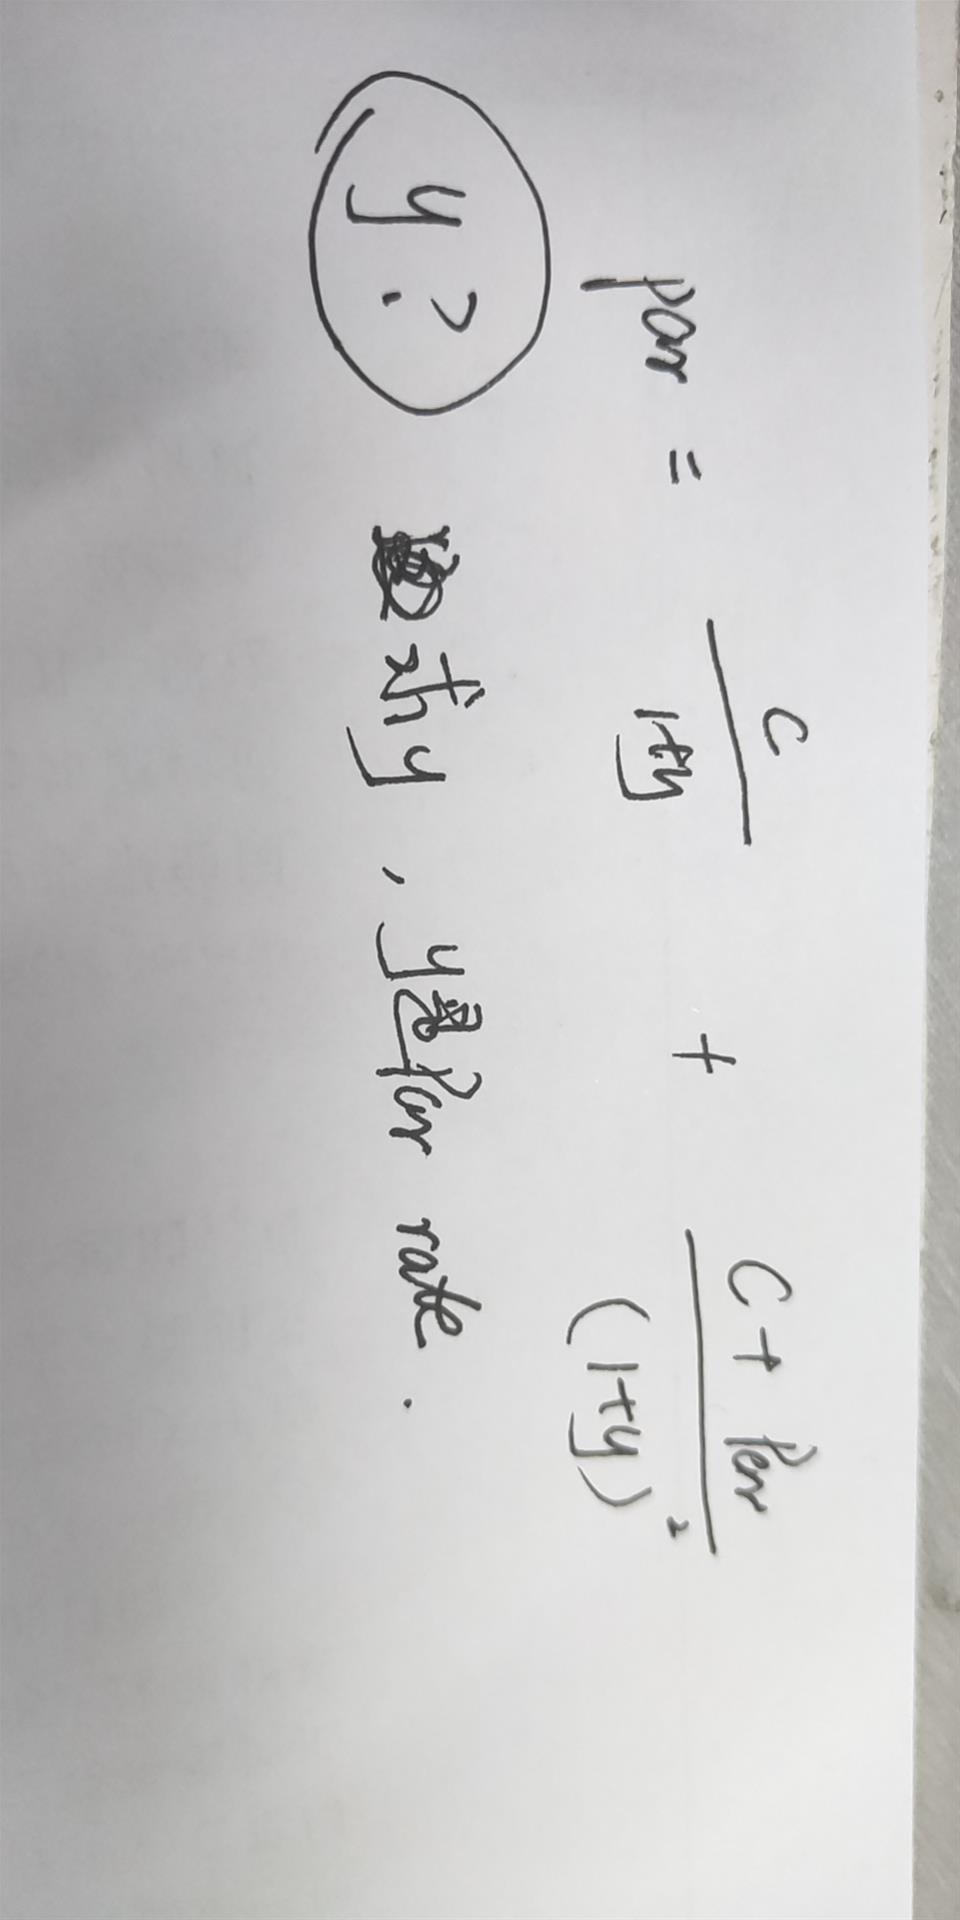 par = C/(1+y) + (C + Par)/(1+y)²
y? 求y, y是Par rate.